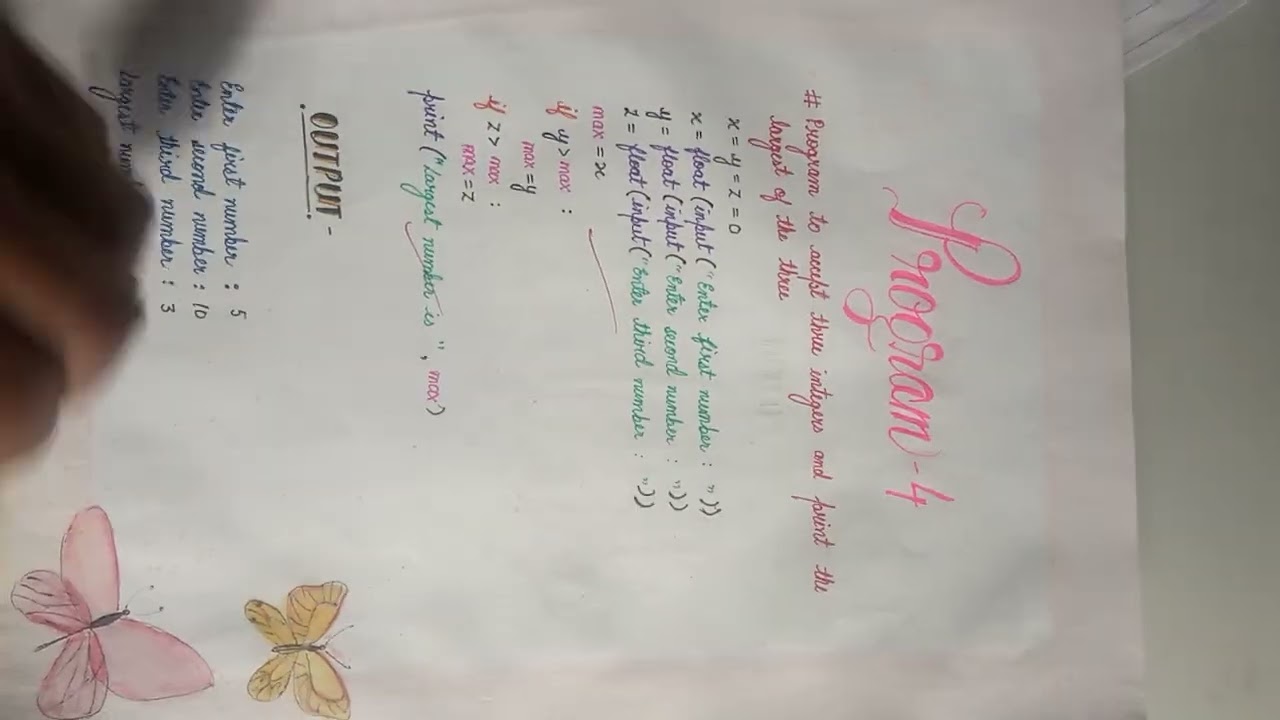 Program-4
# Program to accept three integers and print the
largest of the three
x = y = z = 0
x = float (input ("Enter first number : "))
y = float (input ("Enter second number : "))
z = float (input ("Enter third number : "))
max = x
if y > max :
max = y
if z > max :
max = z
print ("largest number is", max)
OUTPUT -
Enter first number : 5
Enter second number : 10
Enter third number : 3
largest